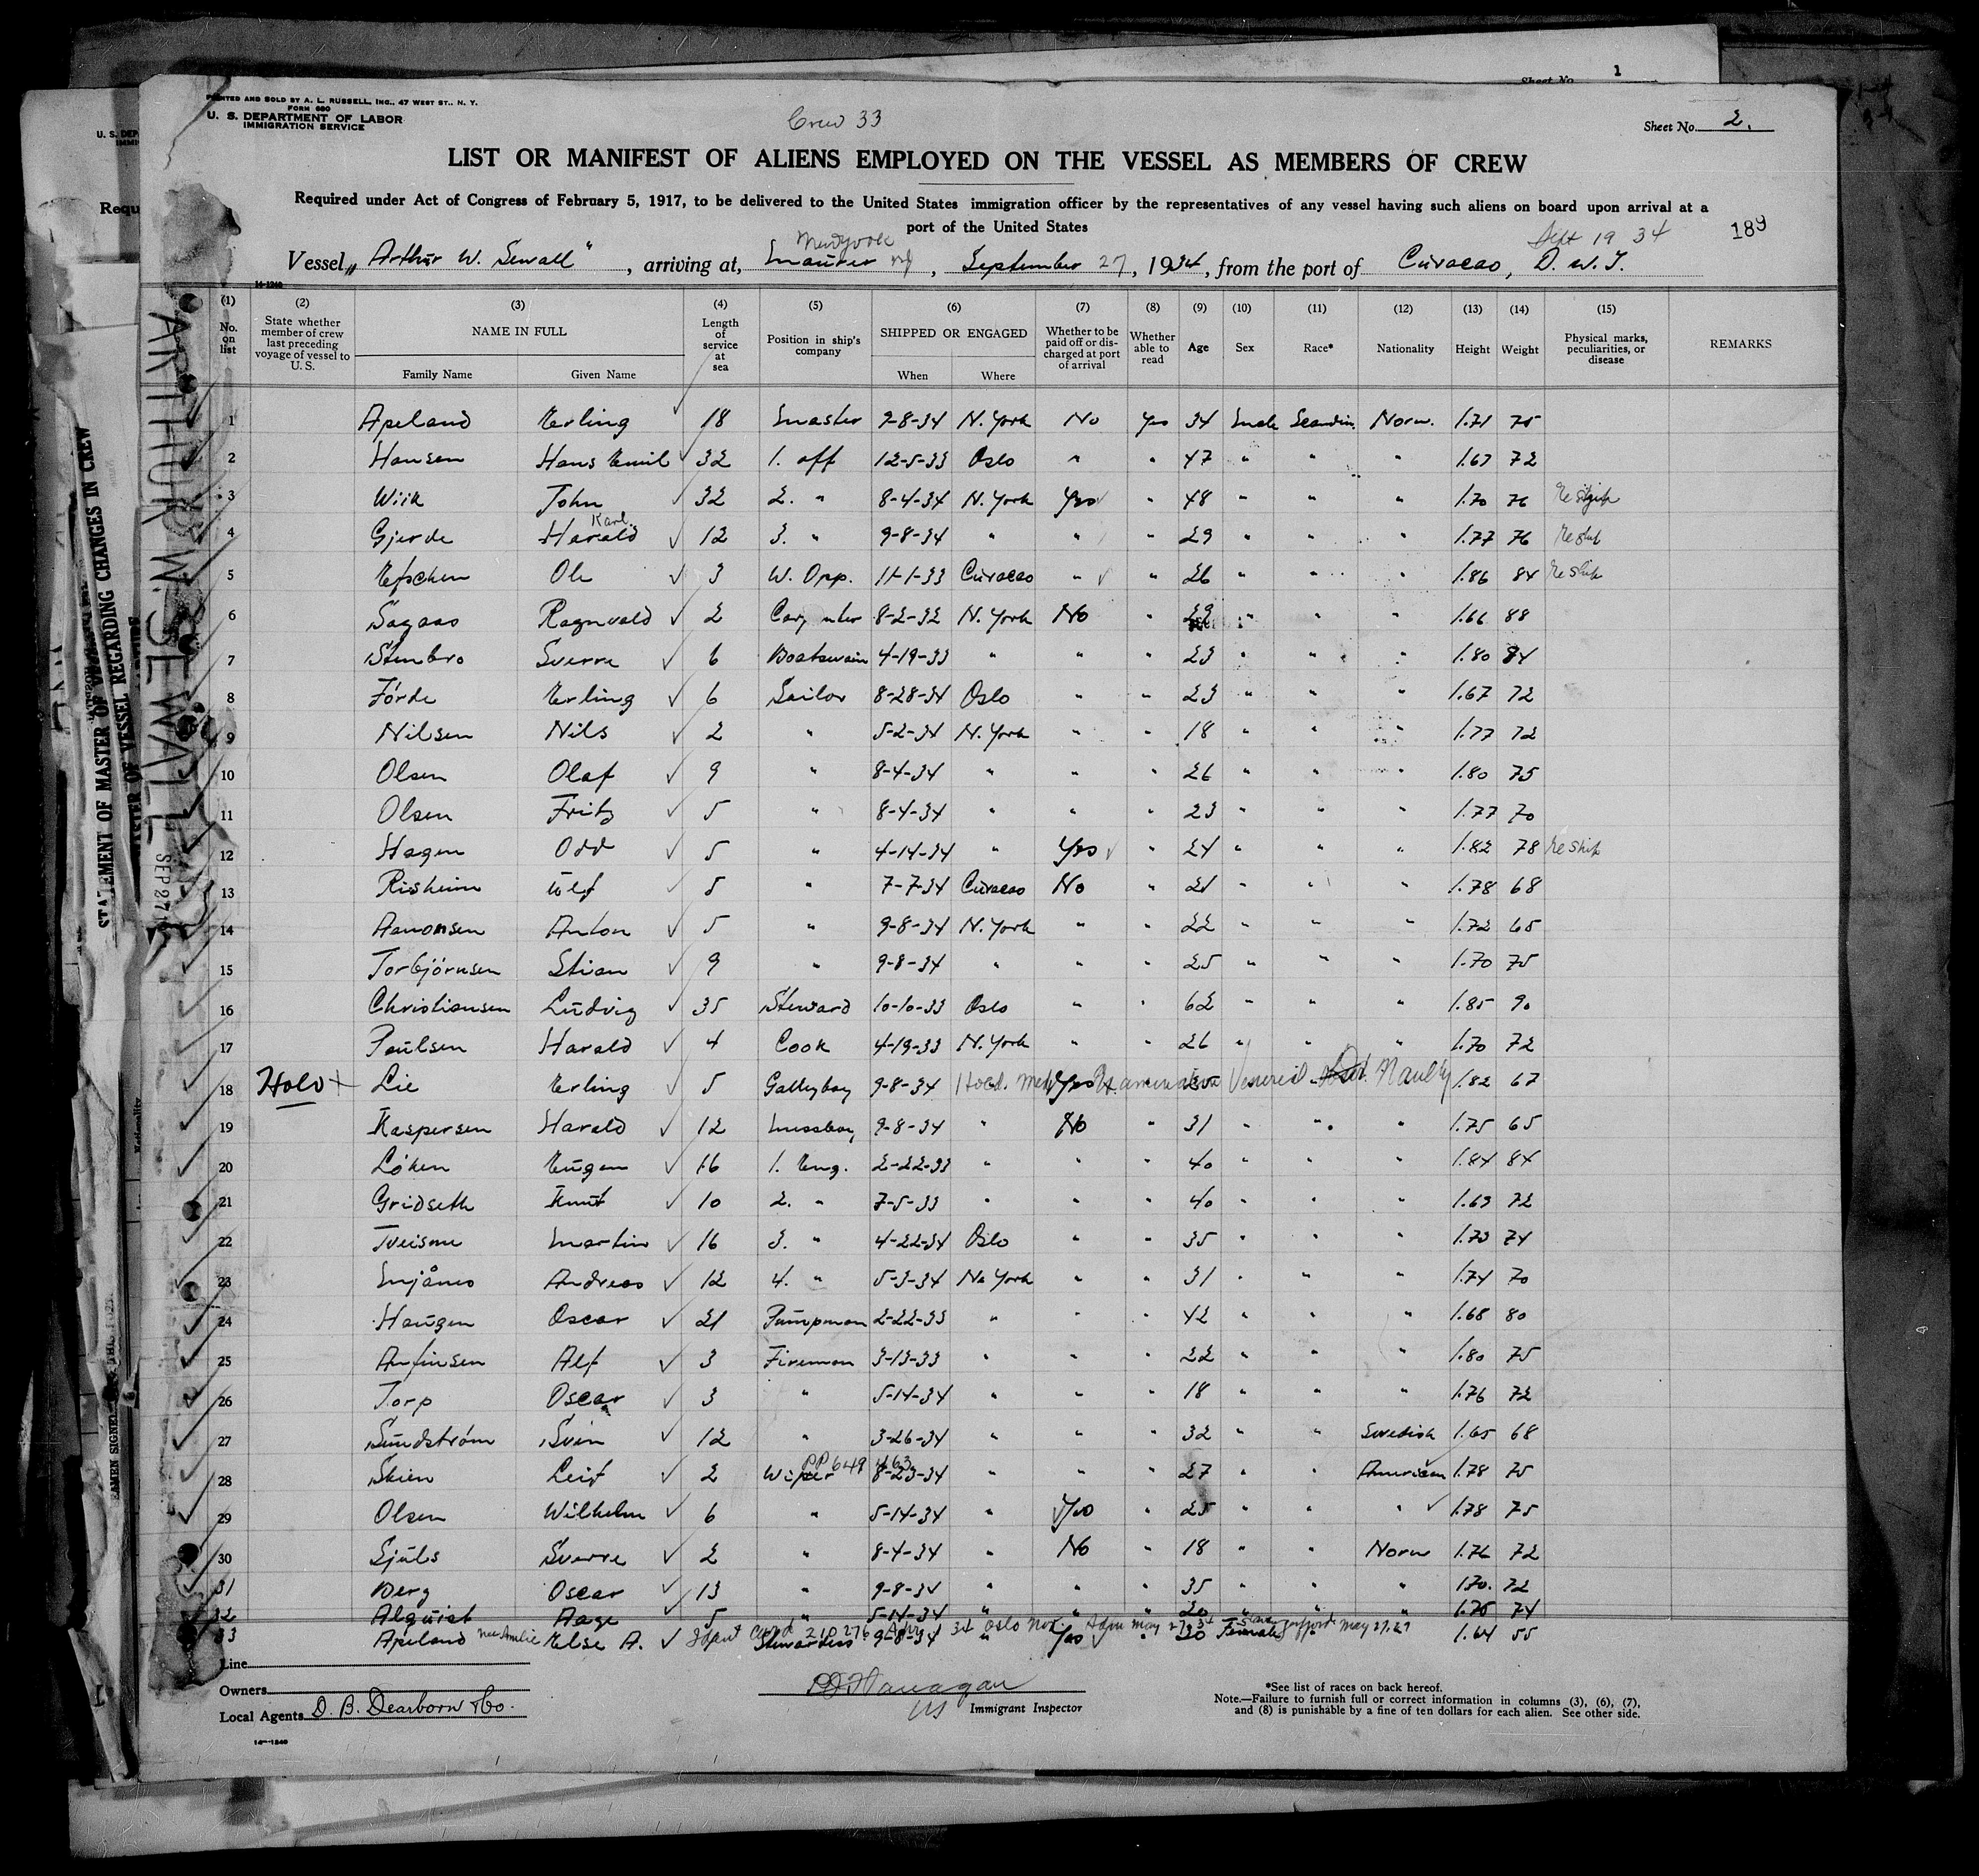 Sheet No. 1
PRINTED AND SOLD BY A. L. RUSSELL, INC., 47 WEST ST., N. Y.
FORM 680
U. S. DEPARTMENT OF LABOR
IMMIGRATION SERVICE
Crew 33
Sheet No. 2.
LIST OR MANIFEST OF ALIENS EMPLOYED ON THE VESSEL AS MEMBERS OF CREW
Required under Act of Congress of February 5, 1917, to be delivered to the United States immigration officer by the representatives of any vessel having such aliens on board upon arrival at a
port of the United States
189
Sept 19 34
Vessel „Arthur W. Sewall", arriving at, Maurer NJ, September 27, 1934, from the port of Curacao, D. W. I.
14-1240
(1) (2) (3) (4) (5) (6) (7) (8) (9) (10) (11) (12) (13) (14) (15)
No. on list State whether member of crew last preceding voyage of vessel to U. S. NAME IN FULL Family Name Given Name Length of service at sea Position in ship's company SHIPPED OR ENGAGED When Where Whether to be paid off or discharged at port of arrival Whether able to read Age Sex Race* Nationality Height Weight Physical marks, peculiarities, or disease REMARKS
1 Apeland Erling 18 Master 9-8-34 N. York No Yes 34 Male Scandin. Norw. 1.71 75
2 Hansen Hans Emil 32 1. off 12-5-33 Oslo " " 47 " " " 1.67 72
3 Wiik John 32 2. " 8-4-34 N. York Yes " 48 " " " 1.70 76 Reship
4 Gjerde Harald Karl 12 3. " 9-8-34 " " " 29 " " " 1.77 76 Reship
5 Ole 3 W. Opp. 11-1-33 Curacao " " 26 " " " 1.86 84 Reship
6 Sagaas Ragnvald 2 Carpenter 8-2-32 N. York No " 29 " " " 1.66 88
7 Stenbro Sverre 6 Boatswain 4-19-33 " " " 23 " " " 1.80 84
8 Förde Erling 6 Sailor 8-28-34 Oslo " " 23 " " " 1.67 72
9 Nilsen Nils 2 " 5-2-34 N. York " " 18 " " " 1.77 72
10 Olsen Olaf 9 " 8-4-34 " " " 26 " " " 1.80 75
11 Olsen Fritz 5 " 8-4-34 " " " 23 " " " 1.77 70
12 Hagen Odd 5 " 4-14-34 " Yes " 24 " " " 1.82 78 Reship
13 Risheim Ulf 5 " 7-7-34 Curacao No " 21 " " " 1.78 68
14 Aamonsen Anton 5 " 9-8-34 N. York " " 22 " " " 1.72 65
15 Torbjörnsen Stian 9 " 9-8-34 " " " 25 " " " 1.70 75
16 Christiansen Ludvig 35 Steward 10-10-33 Oslo " " 62 " " " 1.85 90
17 Paulsen Harald 4 Cook 4-19-33 N. York " " 26 " " " 1.70 72
18 Hold Lie Erling 5 Galleyboy 9-8-34 Hold. Med Examination Yes Venereal 1.82 67
19 Kaspersen Harald 12 Messboy 9-8-34 " No " 31 " " " 1.75 65
20 Löken Eugen 16 1. Eng. 2-22-33 " " " 40 " " " 1.84 84
21 Gridseth Knut 10 2. " 7-5-33 " " " 40 " " " 1.63 72
22 Tveisme Martin 16 3. " 4-22-34 Oslo " " 35 " " " 1.73 74
23 Mjånes Andreas 12 4. " 5-3-34 N. York " " 31 " " " 1.74 70
24 Haugen Oscar 21 Pumpman 2-22-33 " " " 42 " " " 1.68 80
25 Anfinsen Alf 3 Fireman 3-13-33 " " " 22 " " " 1.80 75
26 Torp Oscar 3 " 5-14-34 " " " 18 " " " 1.76 72
27 Sundström Svein 12 " 3-26-34 " " " 32 " " Swedish 1.65 68
PP 649 463
28 Skien Leif 2 Wiper 8-23-34 " " " 27 " " American 1.78 75
29 Olsen Wilhelm 6 " 5-14-34 " Yes " 25 " " " 1.78 75
30 Sjuls Sverre 2 " 8-4-34 " No " 18 " " Norw 1.76 72
31 Berg Oscar 13 " 9-8-34 " " " 35 " " " 1.70. 72
32 Alquist Aage 5 " 5-14-34 " " " 20 " " " 1.75 74
33 Apeland nee Amlie Else A. Ident Card 210276 Stewardess 9-8-34 Oslo Nor. Yes Adm May 27 34 30 Female May 27, 1.64 55
Line
Owners
Local Agents D. B. Dearborn & Co.
Flanagan
US Immigrant Inspector
*See list of races on back hereof.
Note.—Failure to furnish full or correct information in columns (3), (6), (7),
and (8) is punishable by a fine of ten dollars for each alien. See other side.
14—1240
ARTHUR W. SEWALL
SEP 27
STATEMENT OF MASTER OF VESSEL REGARDING CHANGES IN CREW